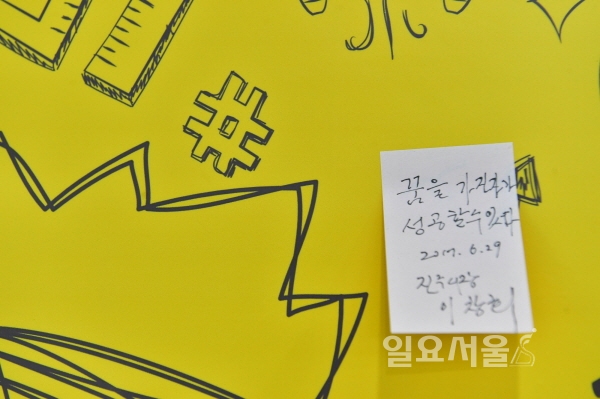 꿈을 가진자가
성공할수있다
2017. 6.29
진주시장
이창희
일요서울